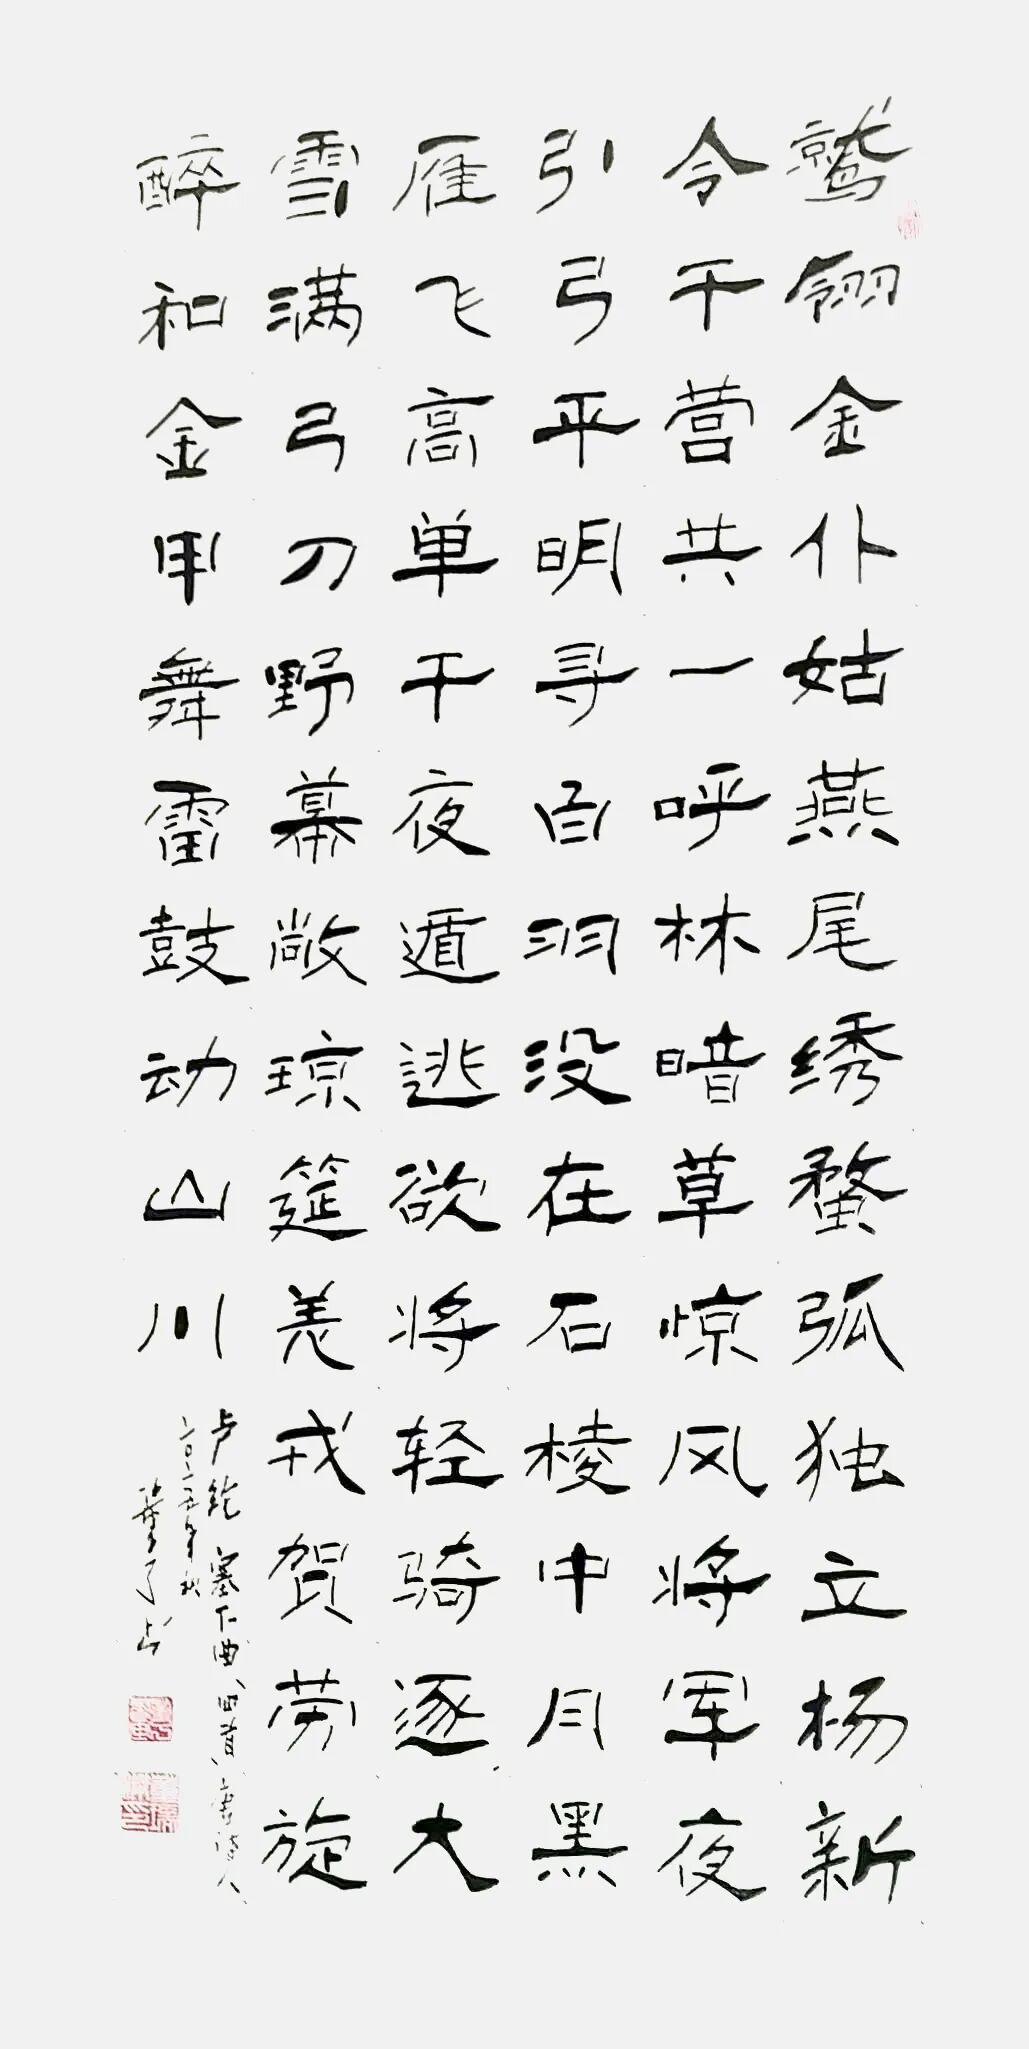 鹫翎金仆姑燕尾绣蝥弧独立杨新
令千营共一呼林暗草惊风将军夜
引弓平明寻白羽没在石棱中月黑
雁飞高单于夜遁逃欲将轻骑逐大
雪满弓刀野幕敞琼筵羌戎贺劳旋
醉和金甲舞雷鼓动山川
卢纶塞下曲、四首、唐诗人
二〇二五年秋